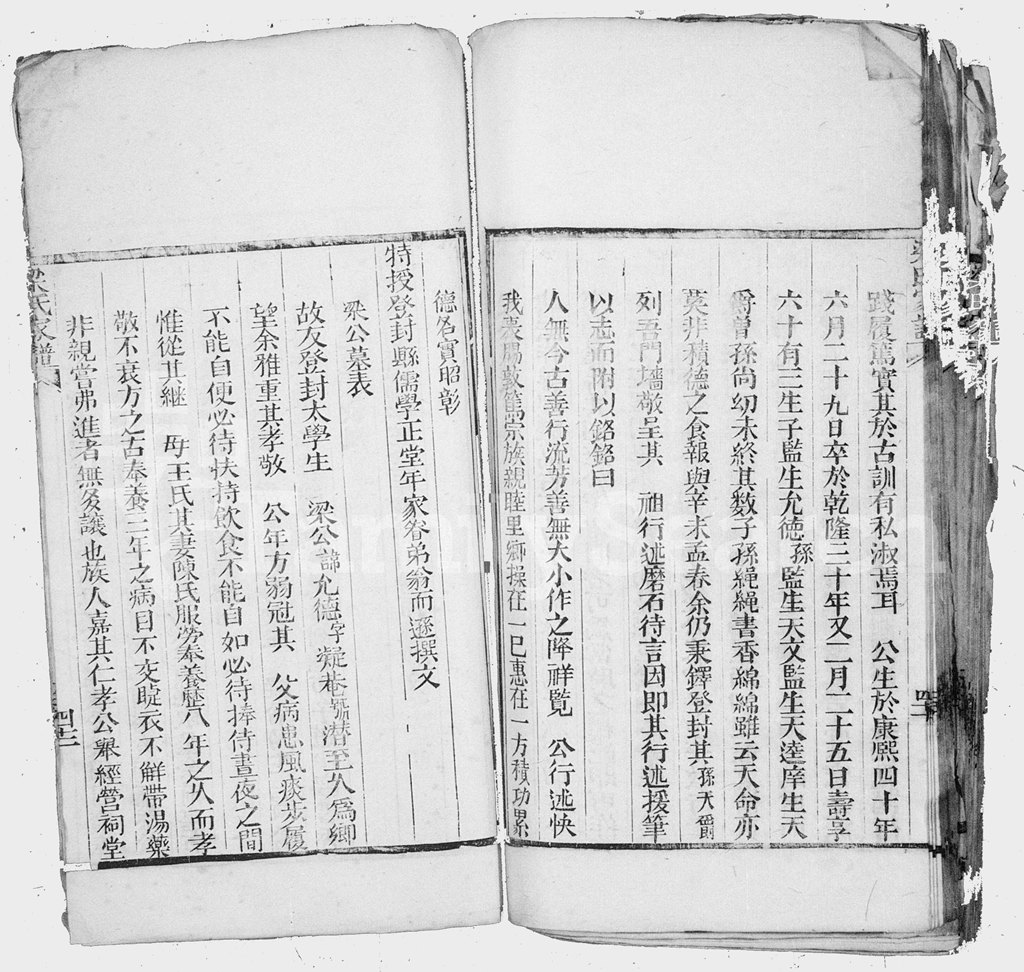 踐履篤實其於古訓有私淑焉耳　公生於康熙四十年
六月二十九日卒於乾隆三十年又二月二十五日壽享
六十有三生子監生允德孫監生天文監生天逵庠生天
爵曾孫尚幼未終其数子孫繩繩書香綿綿雖云天命亦
莫非積德之食報與辛未孟春余仍秉鐸登封其孫天爵
列吾門墻敬呈其　祖行述磨石待言因即其行述援筆
以志而附以銘銘曰
人無今古善行流芳善無大小作之降祥覧　公行述快
我衷膓敦篤宗族親睦里鄉操在一巳惠在一方積功累
德名實昭彰
特授登封縣儒學正堂年家眷弟翁而遜撰文
梁公墓表
故友登封太學生　梁公諱允德字凝菴號潛至人為鄉
望余雅重其孝敬　公年方弱冠其　父病患風痰步履
不能自便必待扶持飲食不能自如必待捧侍晝夜之間
惟從其継　母王氏其妻陳氏服勞奉養歷八年之久而孝
敬不衰方之古奉養三年之病目不交睫衣不觧帶湯藥
非親嘗弗進者無多讓也族人嘉其仁孝公舉經營祠堂
梁氏家譜
四十二